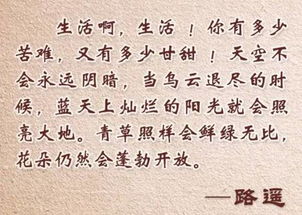 生活啊，生活！你有多少
苦难，又有多少甘甜！天空不
会永远阴暗，当乌云退尽的时
候，蓝天上灿烂的阳光就会照
亮大地。青草照样会鲜绿无比，
花朵仍然会蓬勃开放。
—路遥